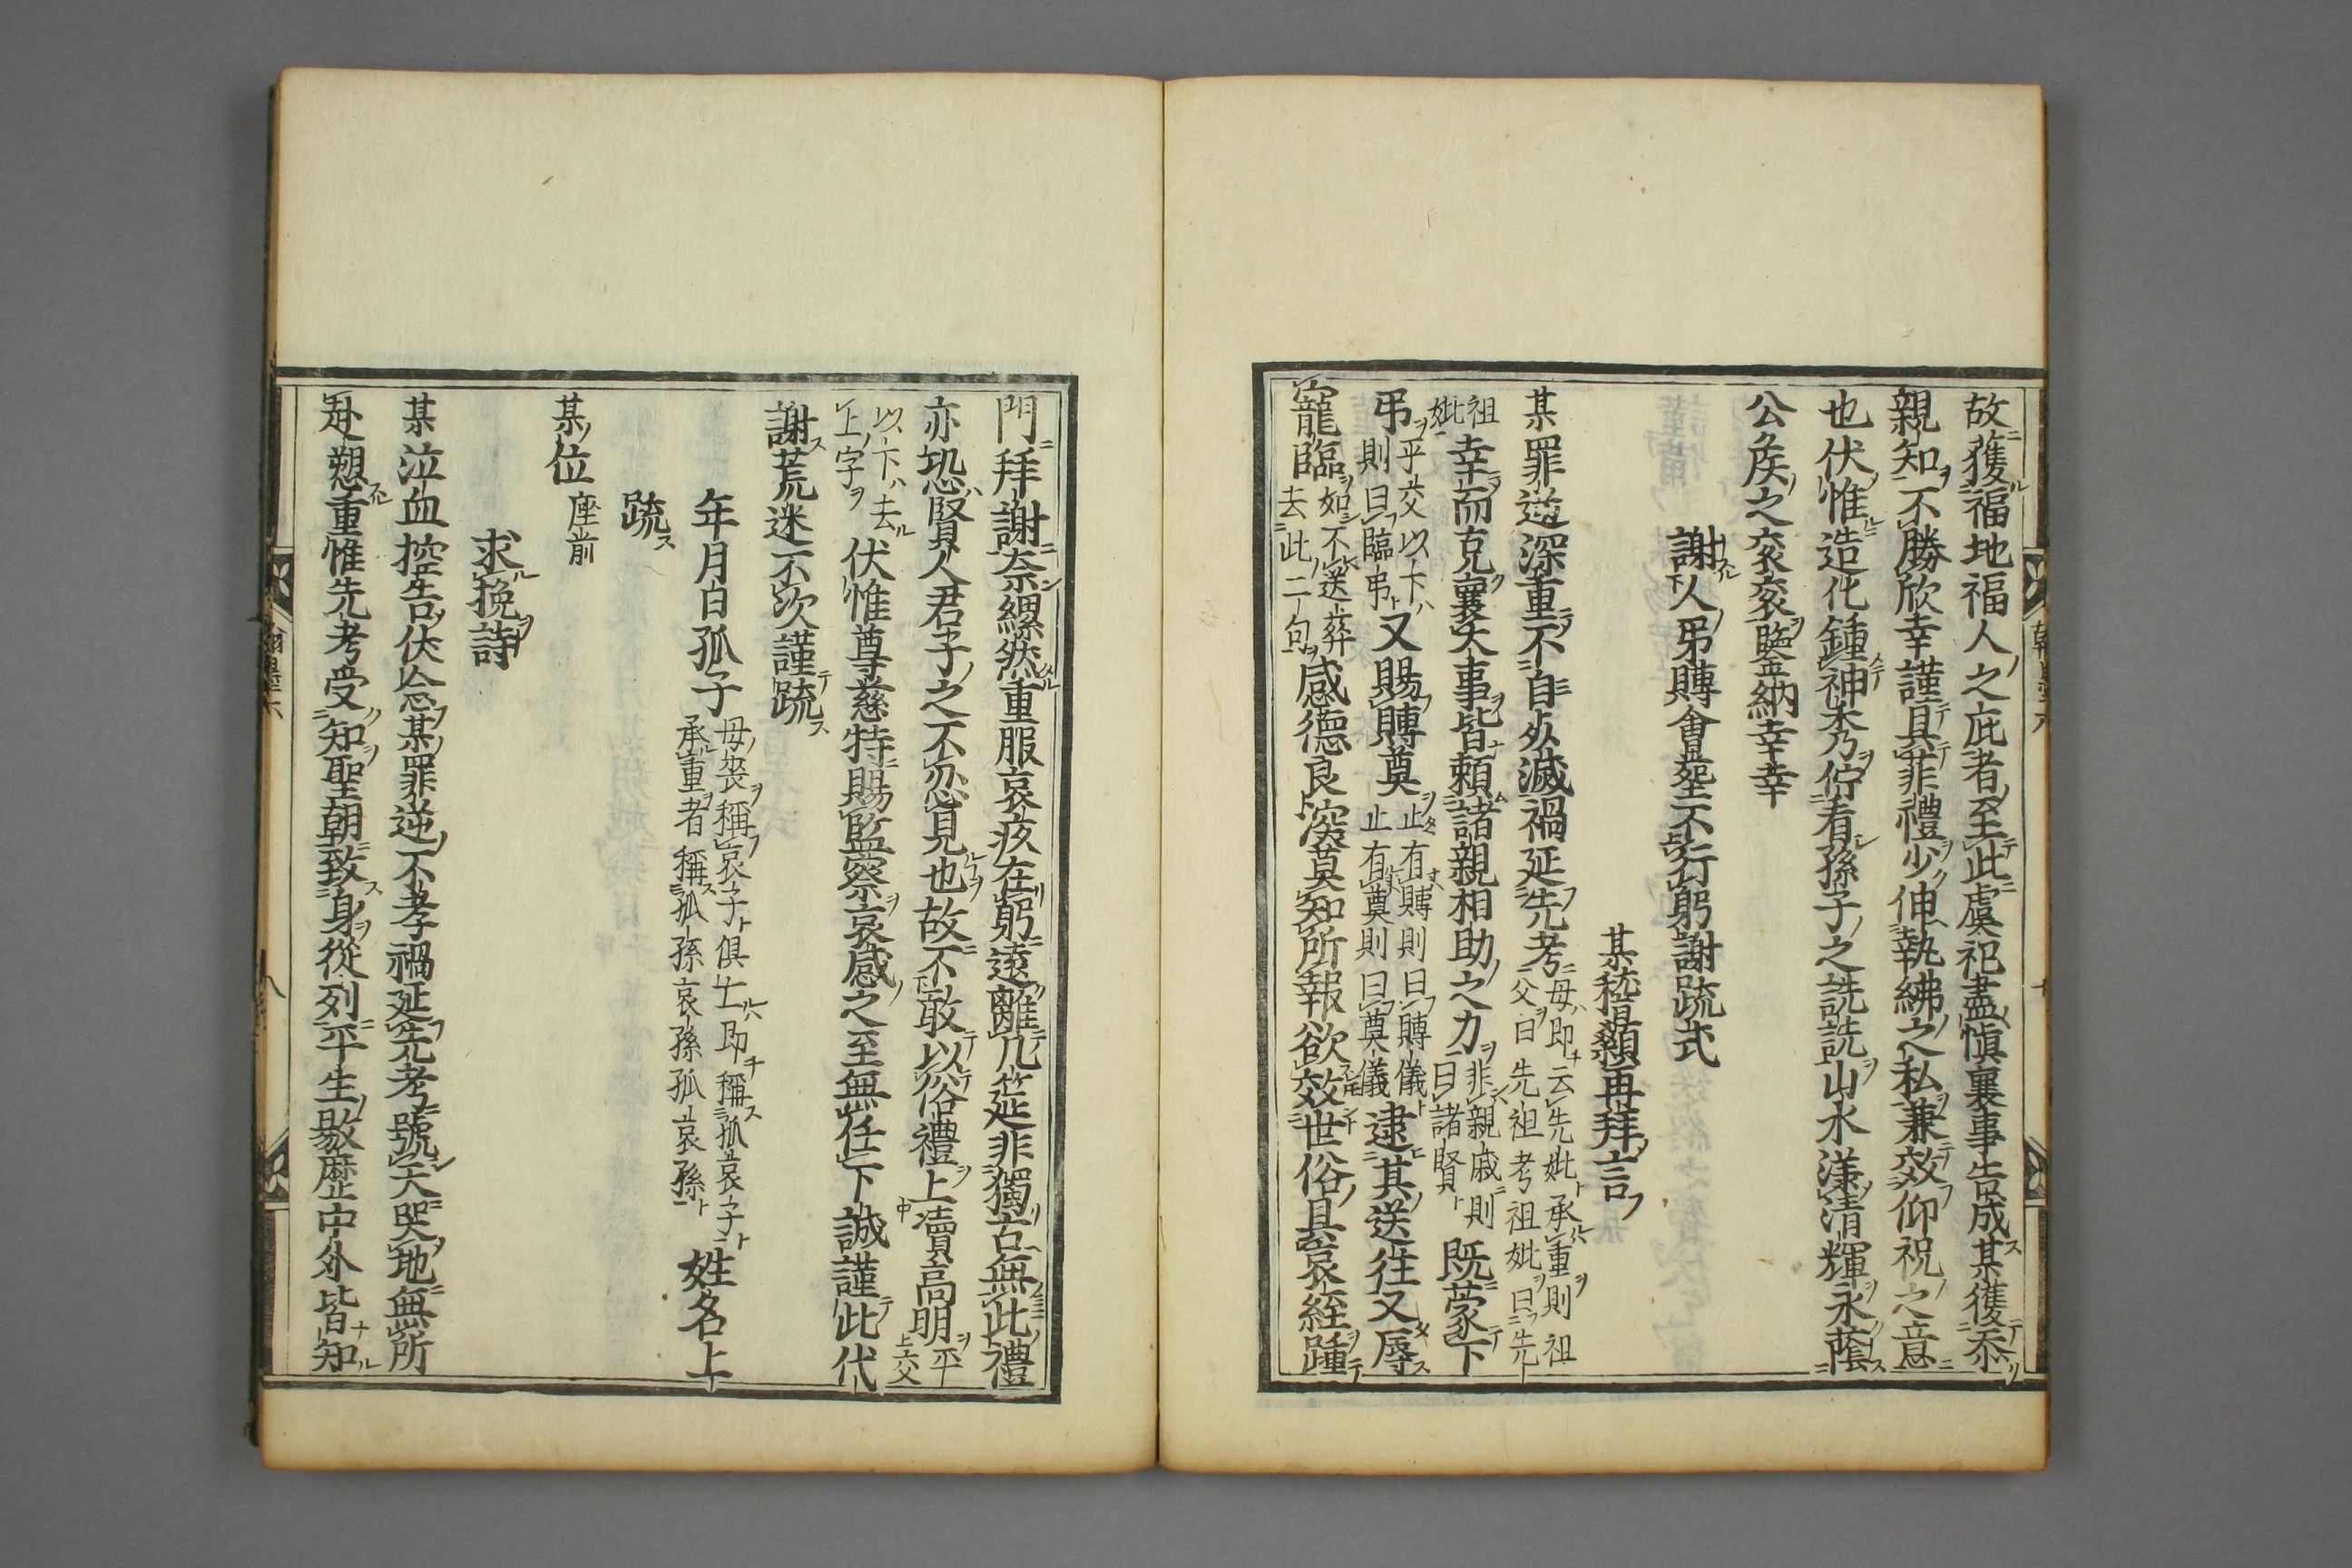 故獲福地福人之庇者至此虞祀盡愼襄事告成某獲忝
親知不勝欣幸謹具菲禮少伸執紼之私兼效仰祝之意
也伏惟造化鍾神秀佇看孫子之詵詵山水漾清輝永蔭
公矦之衮衮鑒納幸幸
謝人弔賻會塟不行躬謝䟽式
某稽顙再拜言
某罪逆深重不自㱓滅禍延先考母即云先妣承重則祖父曰先祖考祖妣曰先
祖妣幸而克襄大事皆頼諸親相助之力非親戚則曰諸賢既蒙下
弔乎交以下則曰臨弔又賜賻奠止有賻則曰賻儀止有奠則曰奠儀逮其送往又辱
寵臨如不送葬去此二句感德良深莫知所報欲效世俗具衰絰踵
門拜謝奈縲然重服哀疚在躬遠離几筵非獨古無此禮
亦恐賢人君子之不忍見也故不敢以俗禮上凟高明平交
以下去上字伏惟尊慈特賜監察哀感之至無任下誠謹此代
謝荒迷不次謹䟽
年月日孤子母喪稱哀子俱亡即稱孤哀子承重者稱孤孫哀孫孤哀孫姓名上
䟽
某位座前
求挽詩
某泣血控告伏念某罪逆不孝禍延先考號天哭地無所
赴愬重惟先考受知聖朝致身從列平生敭歴中外皆知